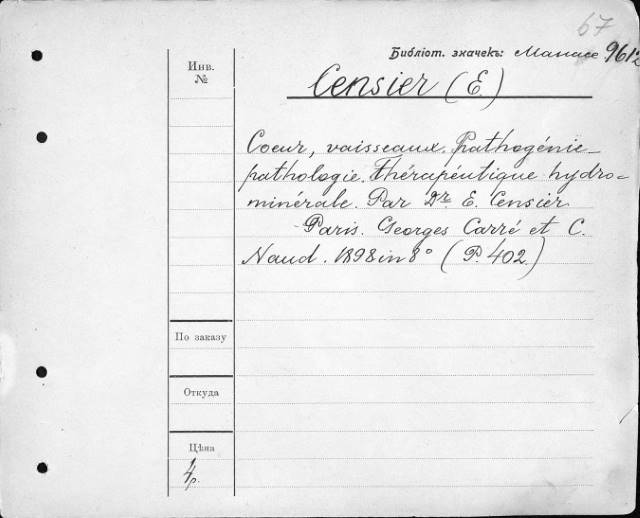 67
Библіот. значекъ: 9612
Инв.
№
Censier (E)
Coeur, vaisseaux. Pathogénie-
pathologie. Thérapeutique hydro-
minérale. Par Dr. E. Censier
Paris. Georges Carré et C.
Naud. 1898 in 8° (P. 402)
По заказу
Откуда
Цѣна
4р.